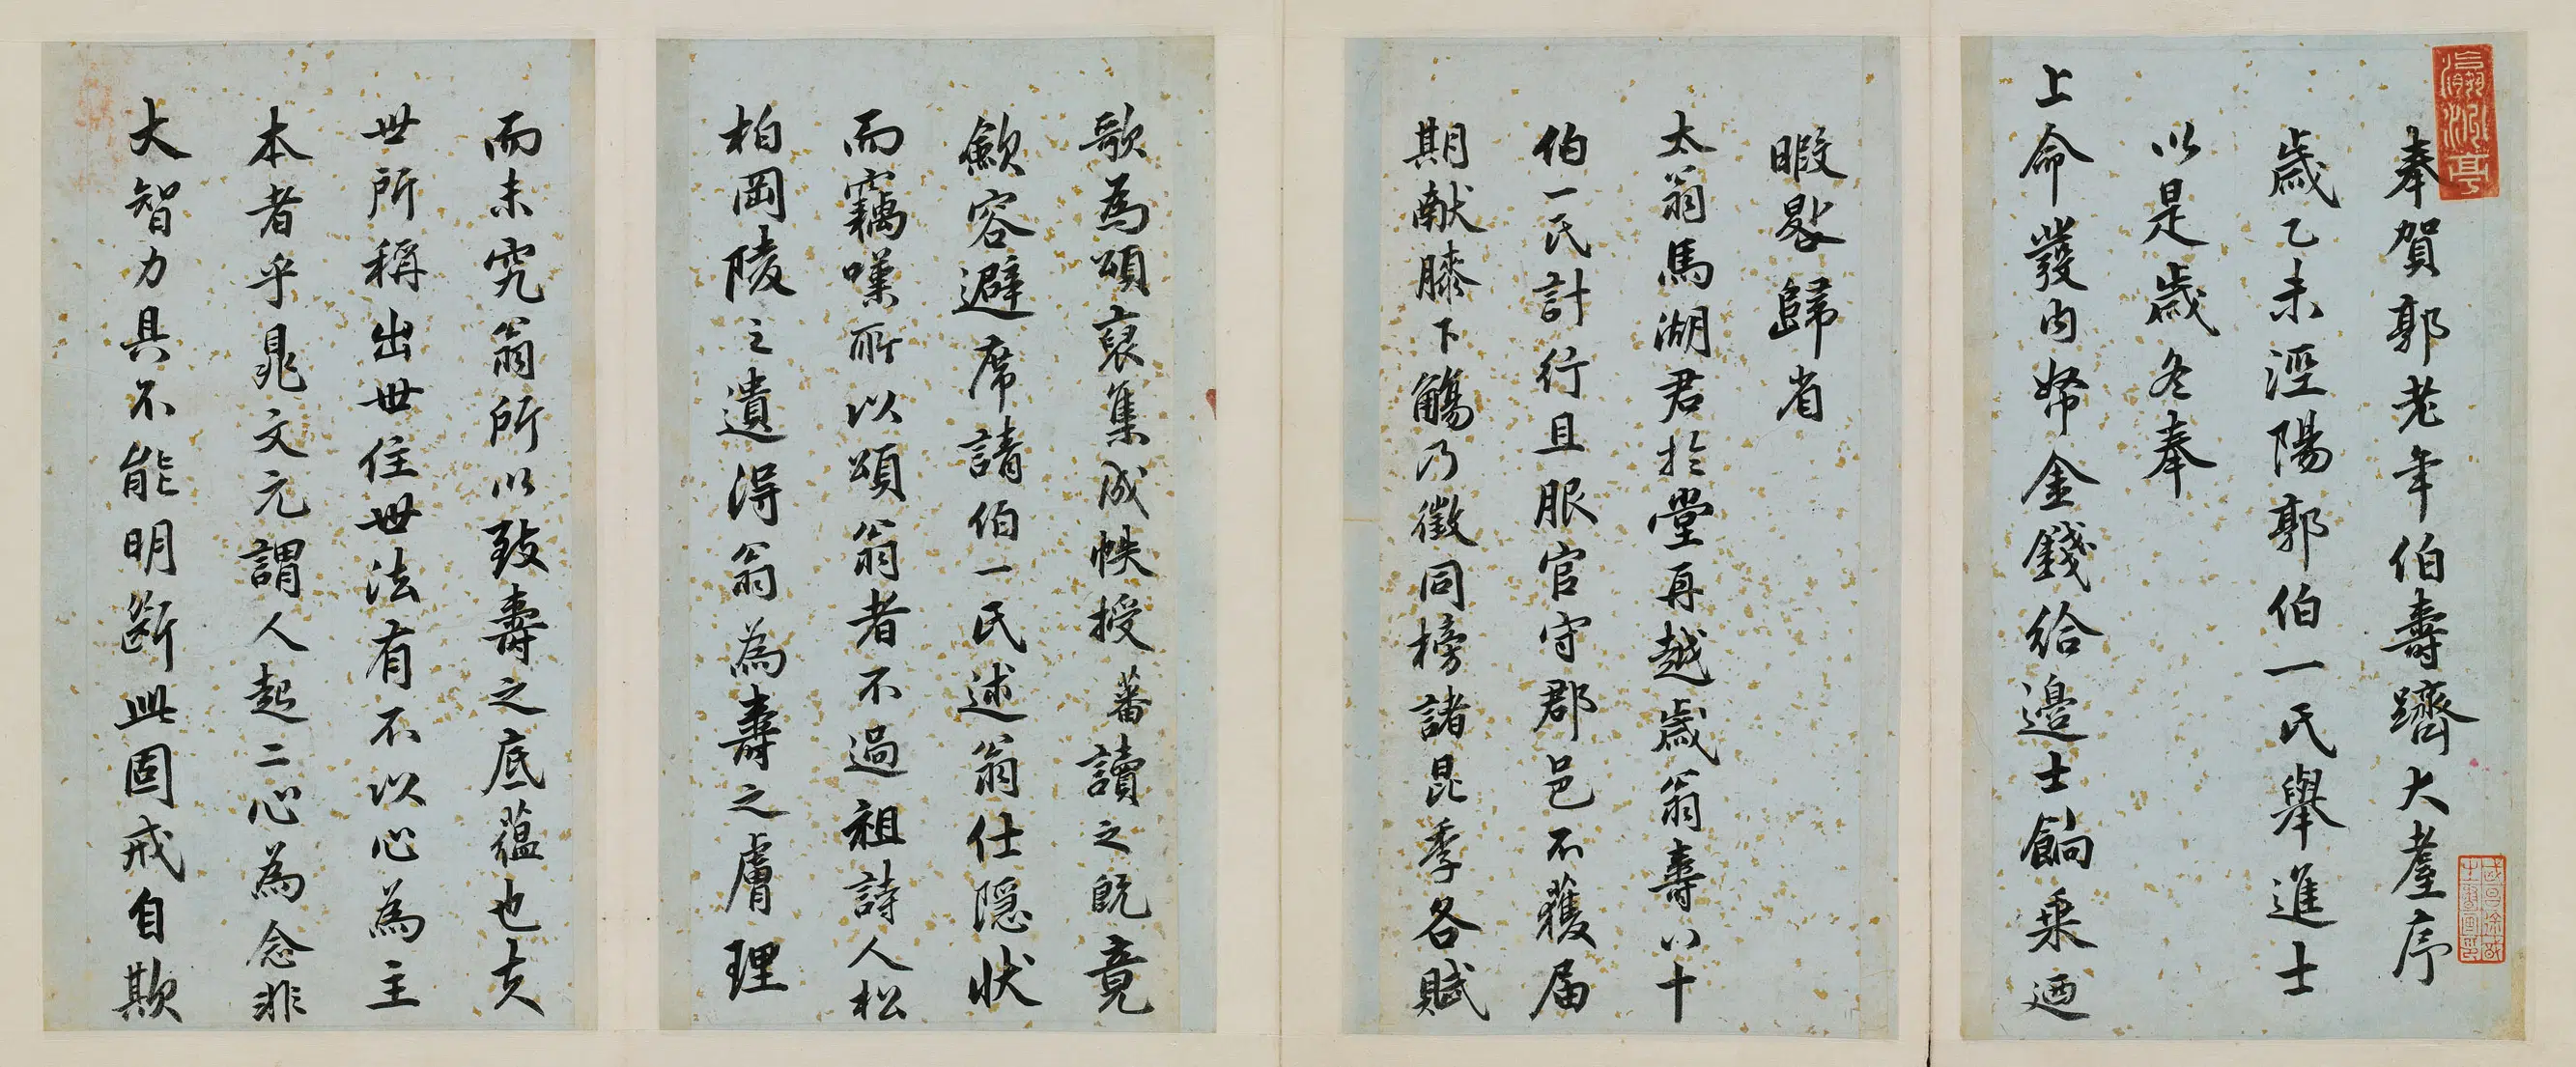 奉賀郭老年伯壽躋大耋序
歲乙未涇陽郭伯一氏舉進士
以是歲冬奉
上命發內帑金錢給邊士餉乘迺
暇晷歸省
太翁馬湖君於堂再越歲翁壽八十
伯一氏計行且服官守郡邑不獲届
期献膝下觴乃徵同榜諸昆季各賦
歌為頌裒集成帙授蕃讀之既竟
歛容避席請伯一氏述翁仕隱狀
而竊嘆所以頌翁者不過祖詩人松
柏岡陵之遺淂翁為壽之膚理
而未究翁所以致壽之底蕴也夫
世所稱出世住世法有不以心為主
本者乎晁文元謂人起二心為念非
大智力具不能明斷此固戒自欺